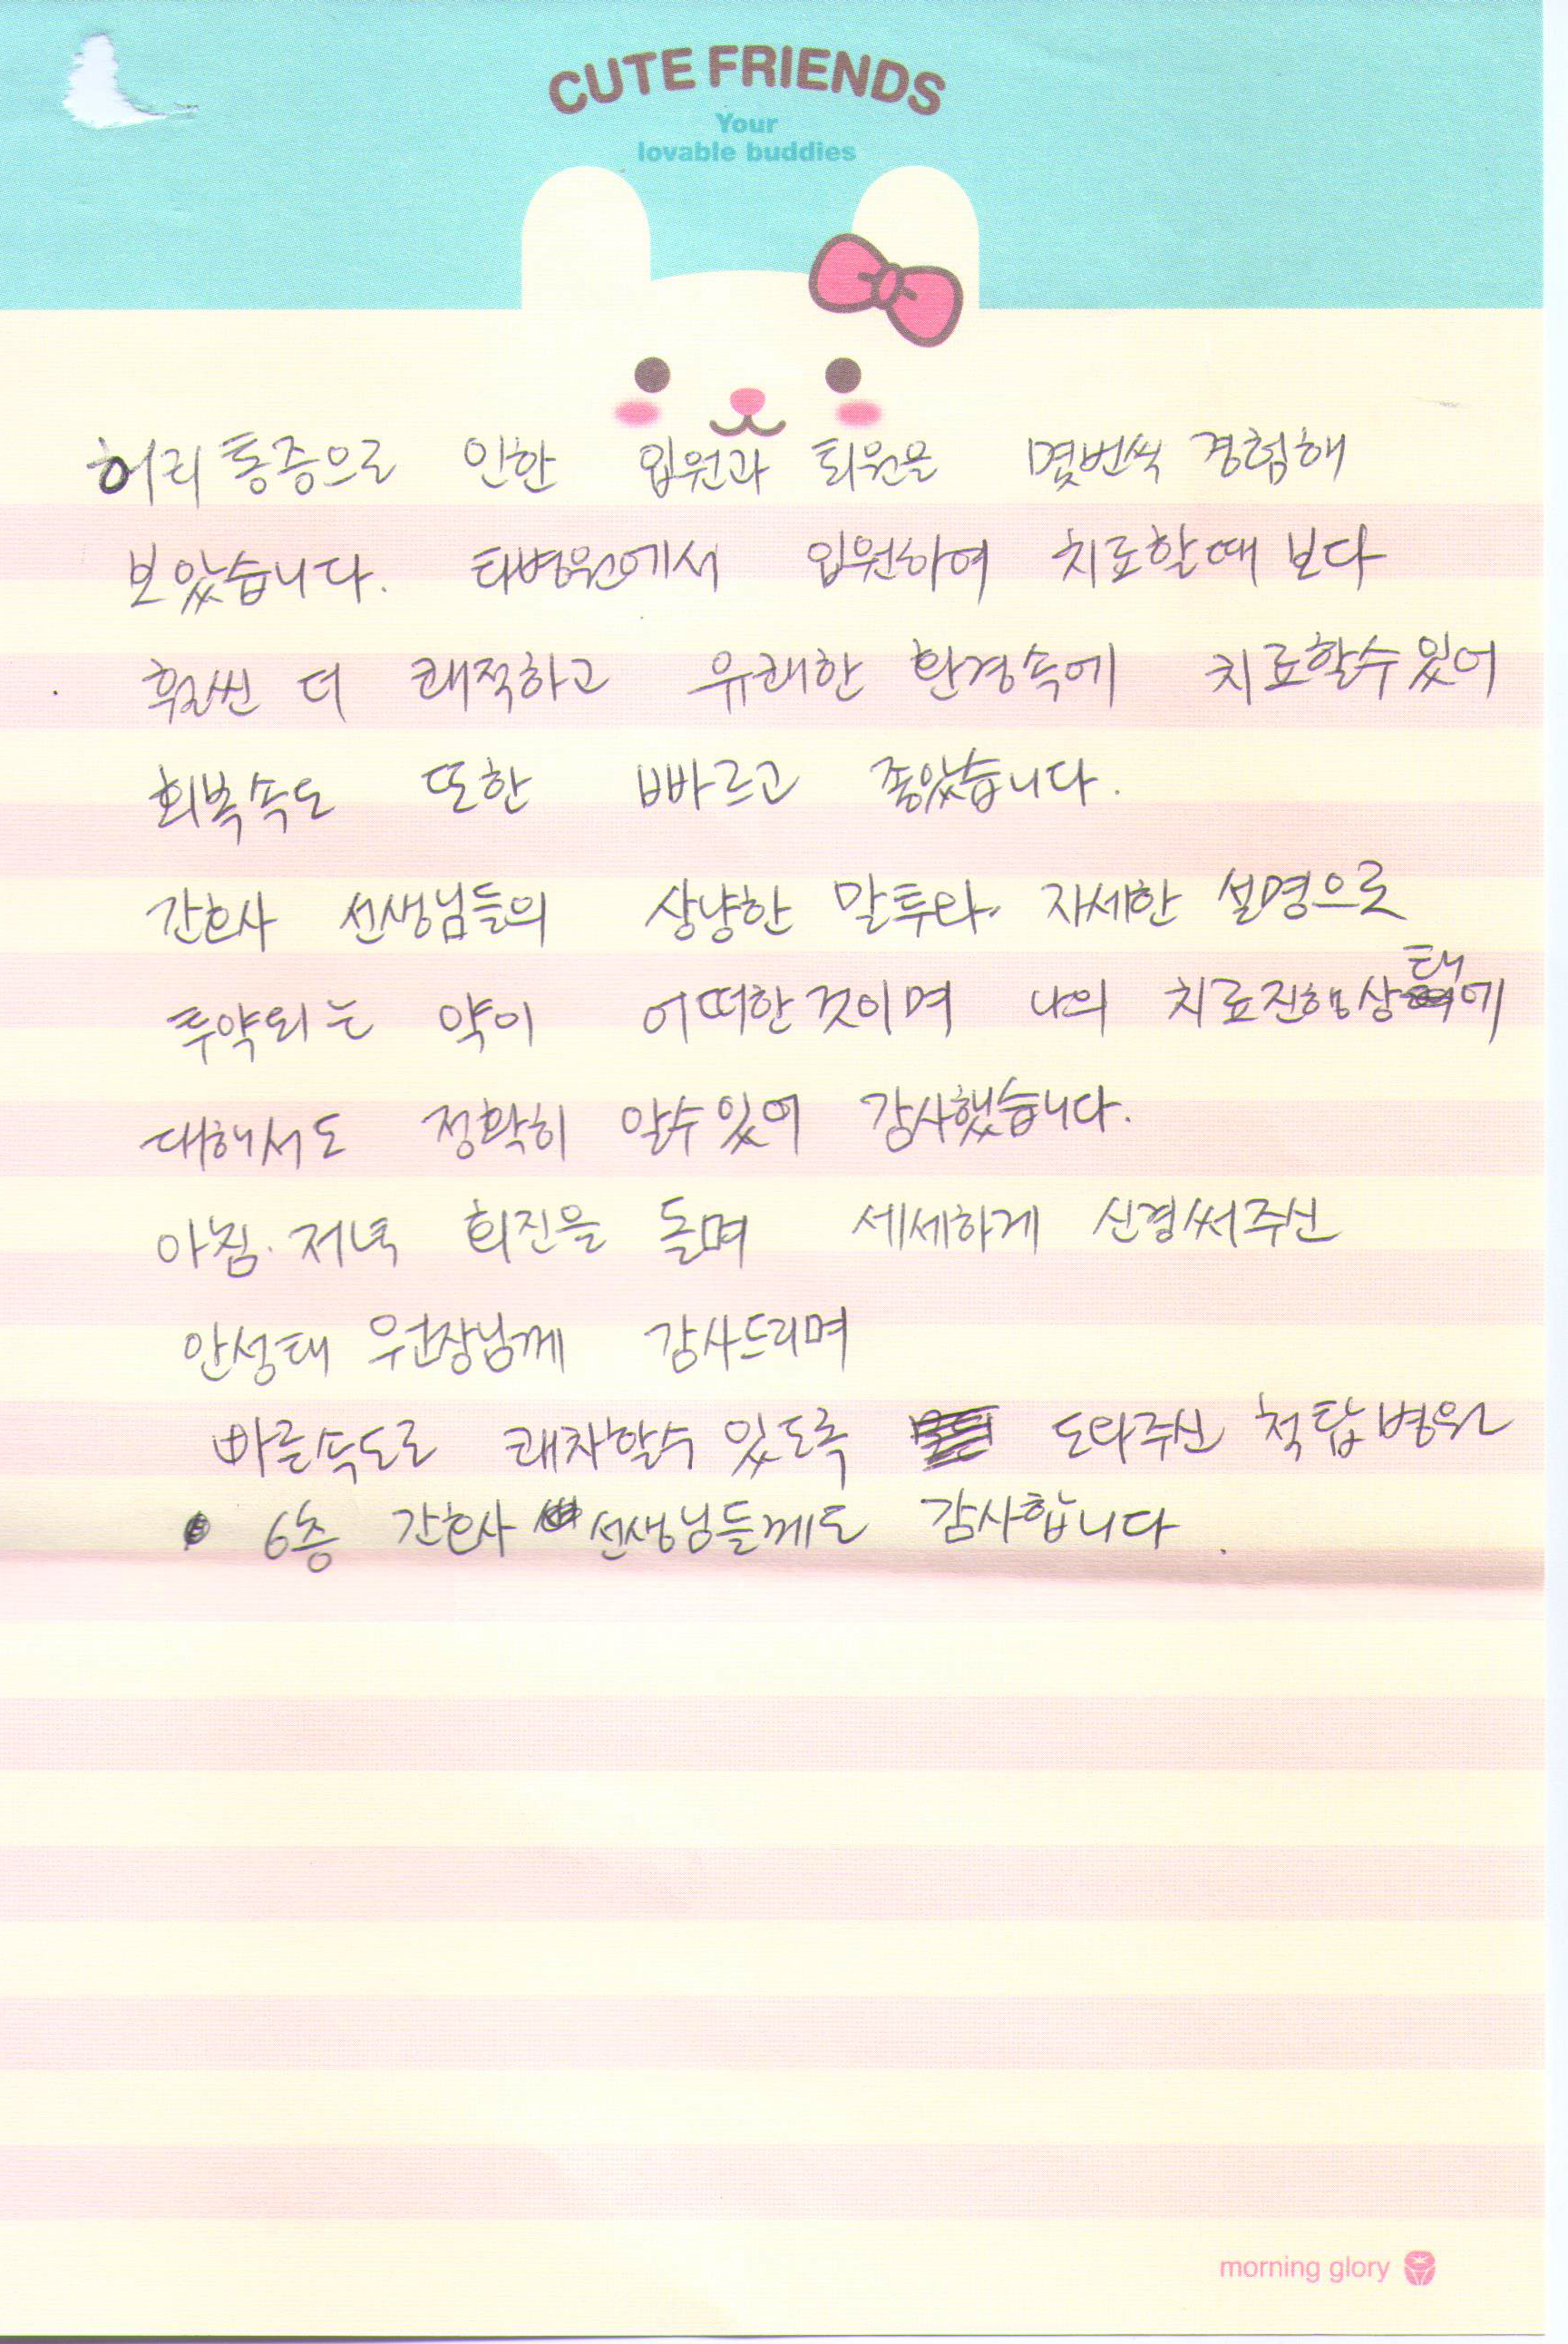 CUTE FRIENDS
Your
lovable buddies
허리 통증으로 인한 입원과 퇴원을 몇번씩 경험해
보았습니다. 타병원에서 입원하여 치료할때 보다
훨씬 더 쾌적하고 유쾌한 환경속에 치료할수있어
회복속도 또한 빠르고 좋았습니다.
간호사 선생님들의 상냥한 말투와 자세한 설명으로
투약되는 약이 어떠한것이며 나의 치료진행상태에
대해서도 정확히 알수있어 감사했습니다.
아침. 저녁 회진을 돌며 세세하게 신경써주신
안성태 원장님께 감사드리며
빠른속도로 쾌차할수 있도록 도와주신 척탑병원
6층 간호사 선생님들께도 감사합니다.
morning glory